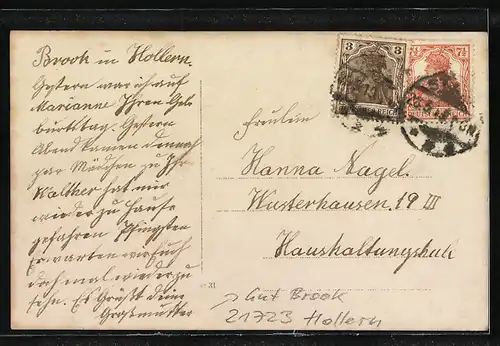 Brook in Hollern.
Gestern war ich auf
Marianne Ihren Ge-
burtstag. Gestern
Abend kamen dennoch
par Mädchen zu Ihr
Walther hat mir
wieder zu Hause
gefahren Pfingsten
Erwarten wir Euch
doch mal wieder zu
sehn. Es Grüßt deine
Großmutter
3
7½
Fräulein
Hanna Nagel.
Wusterhausen. 19 III
Haushaltungschule
31
→ Gut Brook
21723 Hollern